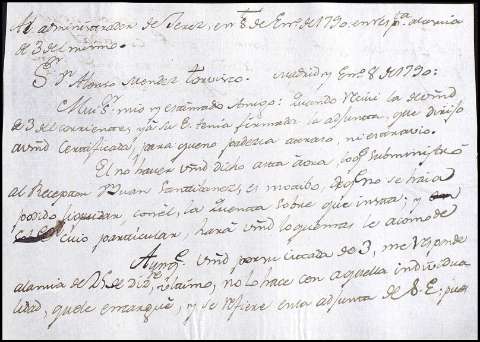 Al administrador de Jerez, en 8 de En.º de 1790, en resp.ta a la mia
de 3 del mismo.
S.r D.n Alonso Mendez Torvisco. Madrid y En.º 8 de 1790:
Mui S.r mio y estimado Amigo: quando recivi la de vmd
de 3 del corriente, ya su E. tenía firmada la adjunta, que dirijo
a vmd Certificada, para que no padezca atraso, ni extravio.
El no haver vmd dicho asta aora, los Subministró
al Receptor D.n Juan Santibañez, es motibo, de no se haia
podido liquidar con él, la quenta sobre que insta; y
cuio particular, hará vmd lo que mas le acomode
Aunq.e vmd por su citada de 3, me responde
a la mia de 25 de Diz.e ultimo, no lo hace con aquella individua-
lidad, que le encargué, y se refiere en la adjunta de S. E; pues